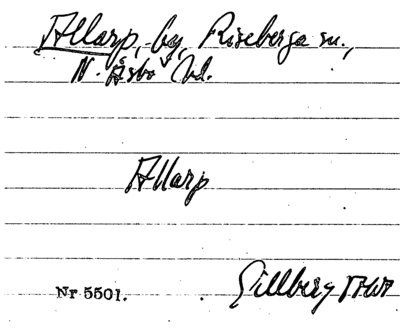 Allarp, by, Riseberga sn.,
N. Åsbo hd.
Allarp
Nr 5501.
Gillberg